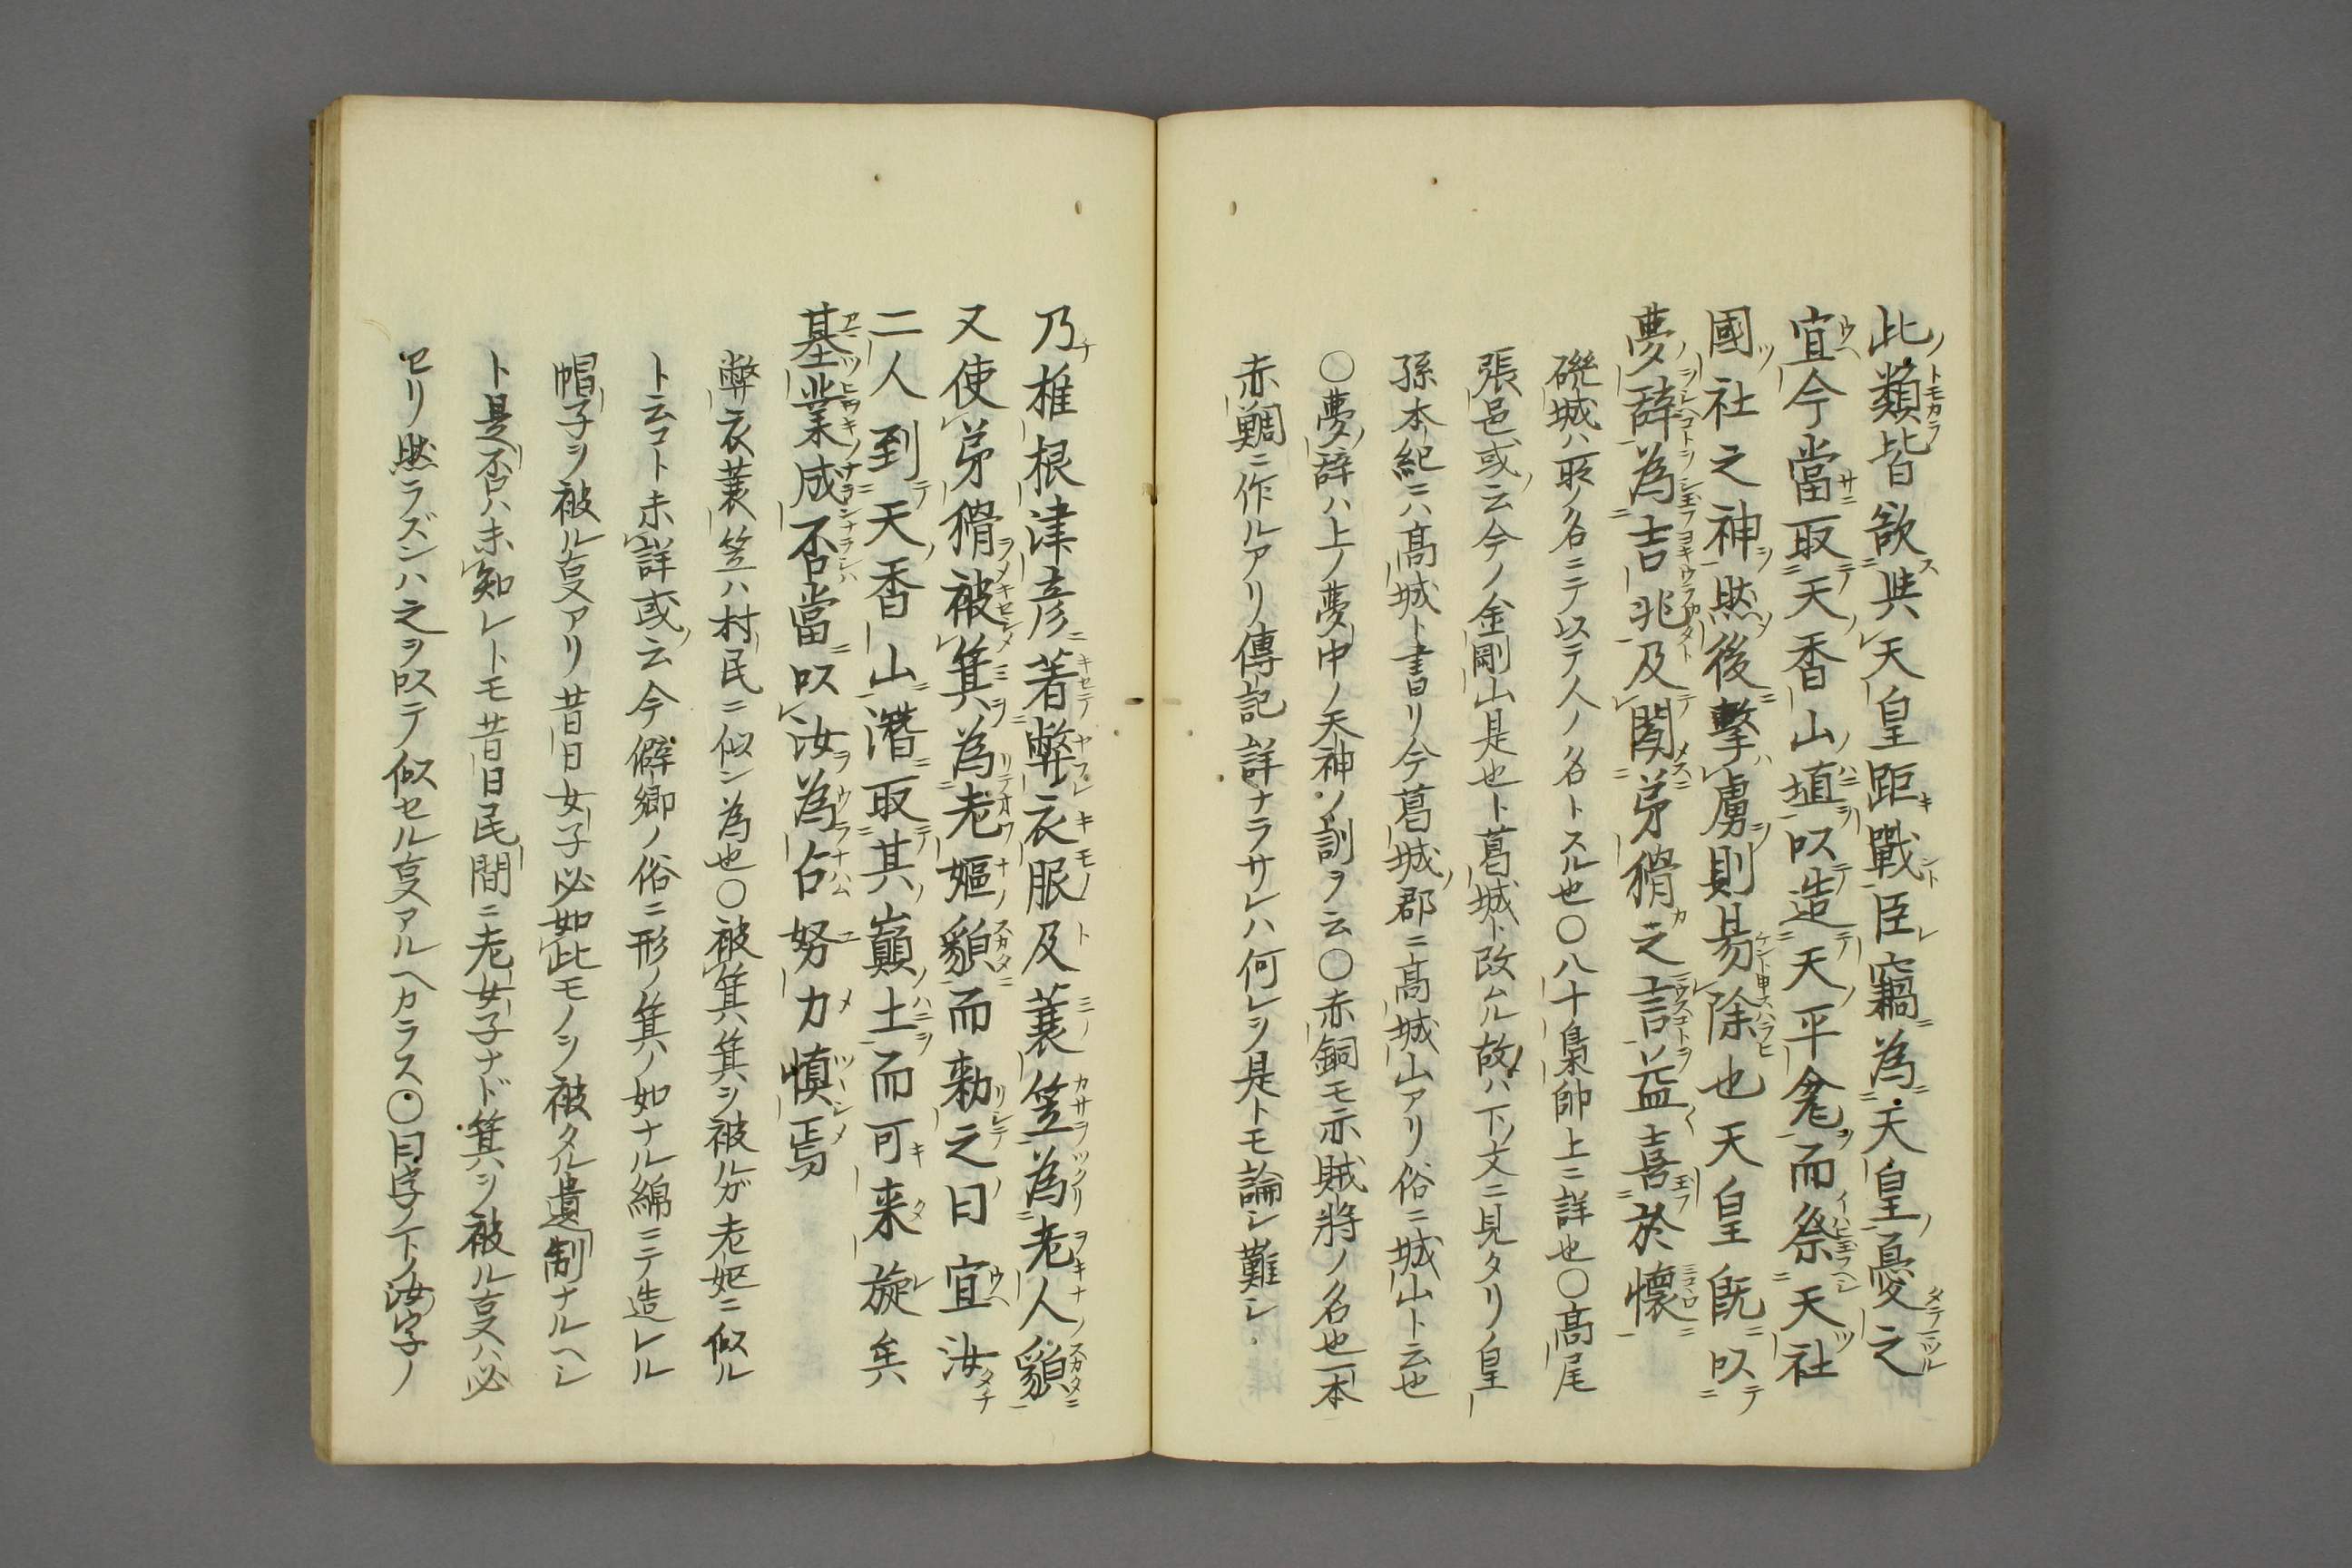 此類皆欲與天皇距戰臣竊為天皇憂之
宜今當取天香山埴以造天平瓮而祭天社
國社之神然後擊虜則易除也天皇既以
夢辞為吉兆及聞弟猾之言益喜於懷
磯城ハ所ノ名ニテ以テ人ノ名トスル也〇八十梟帥上ニ詳也〇高尾
張邑或云今ノ金剛山是也ト葛城ト改ムル故ハ下ノ文ニ見タリノ皇
孫本紀ニハ高城ト書リ今葛城郡ニ高城山アリ俗ニ城山ト云也
〇夢ノ辞ハ上ノ夢中ノ天神ノ訓ヲ云〇赤銅モ亦賊将ノ名也一本
赤鯛ニ作ルアリ傳記詳ナラサレハ何レヲ是トモ論シ難シ
乃椎根津彦著弊衣服及蓑笠為老人貌
又使弟猾被箕為老嫗貌而勅之曰宜汝
二人到天香山潛取其巔土而可来旋矣
基業成否當以汝為占努力慎焉
弊衣蓑笠ハ村民ニ似ン為也〇被箕箕ヲ被ルガ老嫗ニ似ル
ト云コト未詳或云今僻郷ノ俗ニ形ノ箕ノ如ナル綿ニテ造レル
帽子ヲ被ル叓アリ昔日女子必如此モノヲ被タル遺制ナルヘシ
ト是否ハ未知レトモ昔日民間ニ老女子ナド箕ヲ被ル叓ハ必
セリ然ラズンハ之ヲ以テ似セル叓アルヘカラス〇曰字ノ下ノ汝字ノ